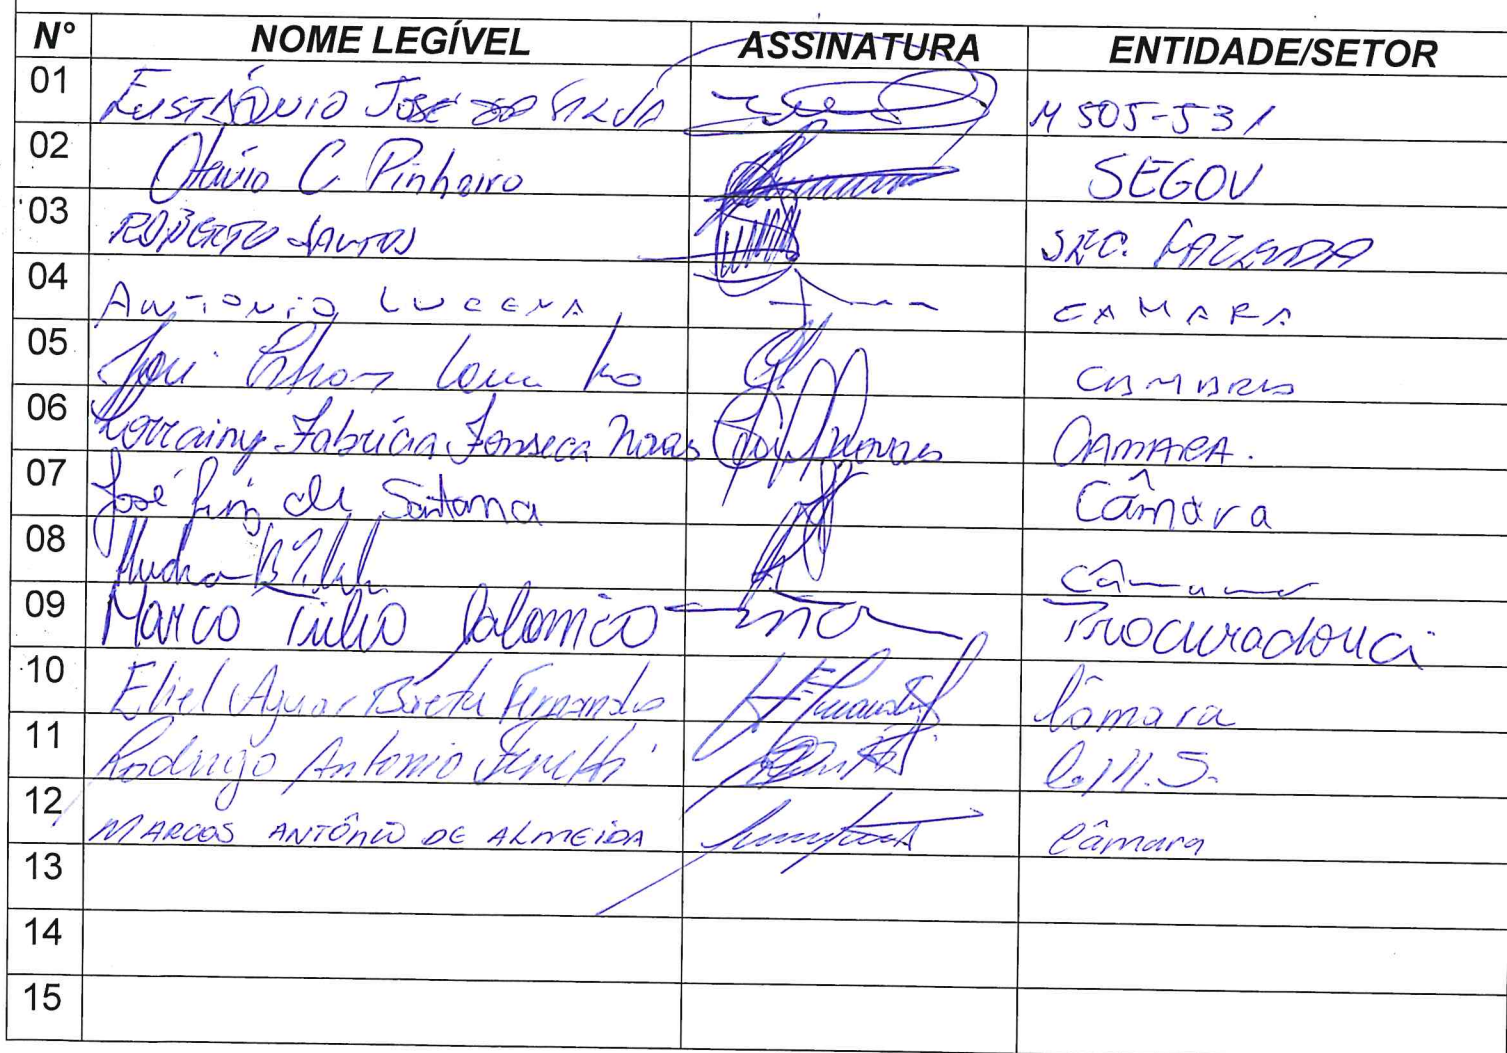 Nº NOME LEGÍVEL ASSINATURA ENTIDADE/SETOR
01 EUSTÁQUIO JOSÉ DA SILVA M 505-531
02 Otávio C. Pinheiro SEGOV
03 ROBERTO SANTOS SEC. FAZENDA
04 ANTONIO LUCENA CAMARA
05 José CAMARA
06 Lorrainy Fabrícia Fonseca Novais CAMARA.
07 José Luiz de Santana Câmara
08 Câmara
09 Marco Túlio Procuradoria
10 Eliel Aguiar Fernandes Câmara
11 Rodrigo Antonio C.M.S.
12 MARCOS ANTÔNIO DE ALMEIDA Câmara
13
14
15